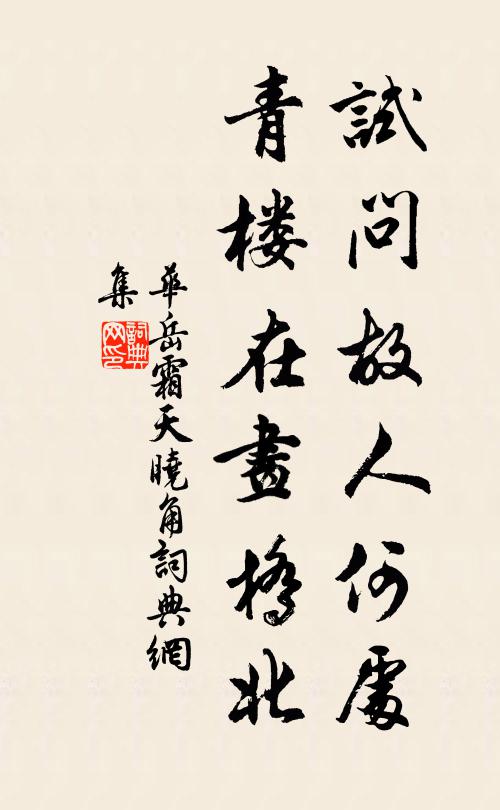 試問故人何處
青楼在畫橋北
華岳霜天曉角詞典網
集
詞典
网印